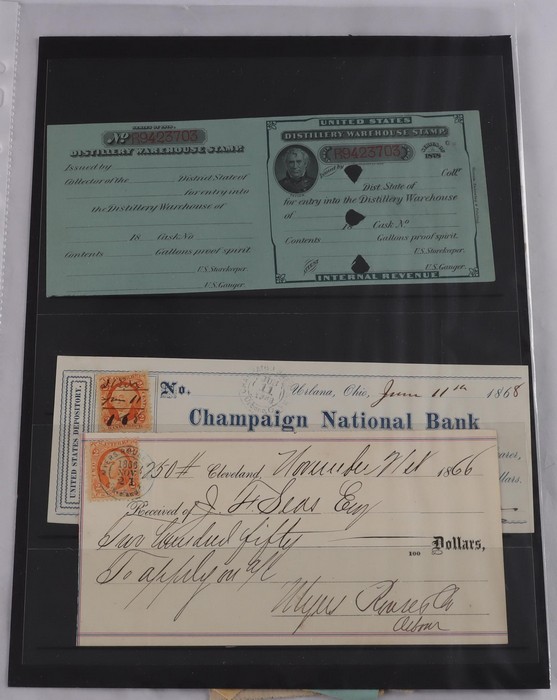 SERIES OF 1878.
No. R9423703
DISTILLERY WAREHOUSE STAMP.
Issued by
Collector of the District State of
for entry into
the Distillery Warehouse of
18 Cask No
Contents Gallons proof spirit.
U.S. Storekeeper.
U.S. Gauger.
UNITED STATES
DISTILLERY WAREHOUSE STAMP.
R9423703
Issued by
SERIES OF
1878
Coll.
Dist. State of
for entry into the Distillery Warehouse
of
18 Cask No
Contents Gallons proof spirit.
U.S. Storekeeper.
U.S. Gauger.
INTERNAL REVENUE
UNITED STATES DEPOSITORY.
No.
Urbana, Ohio, June 11th 1868
Champaign National Bank
Dollars.
$250 # Cleveland, November 21st 1866
Received of J. F. Seas Esq
Two hundred fifty 100 Dollars,
To apply on a/c
Myers Rouse & Co